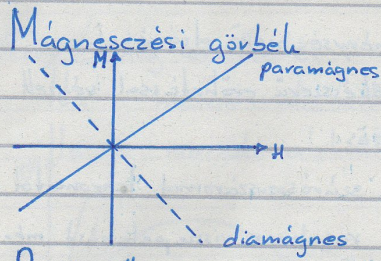 Mágneseczési görbék
M
paramágnes
H
diamágnes